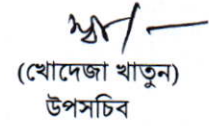 স্বা/—
(খোদেজা খাতুন)
উপসচিব